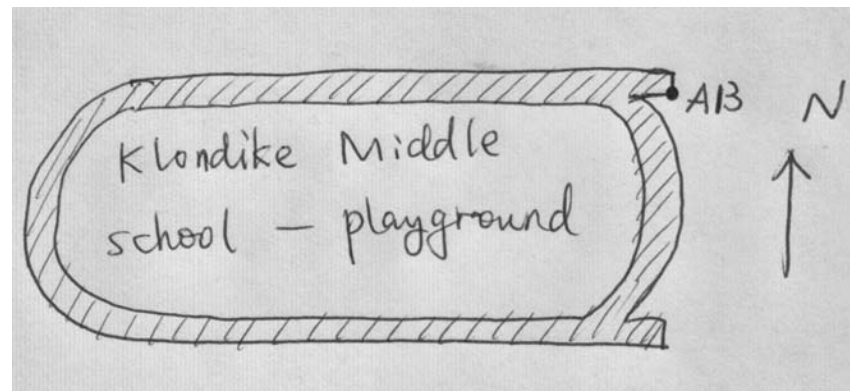 Klondike Middle
school — playground
AB
N